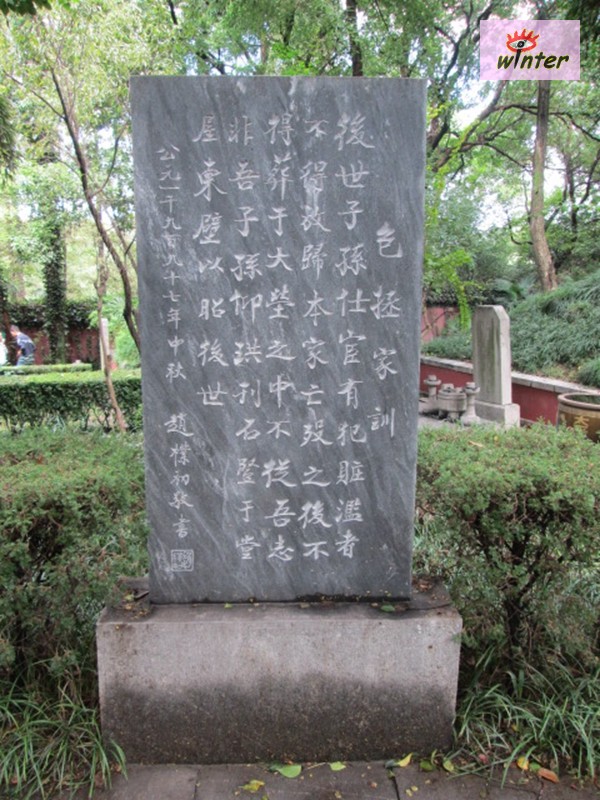 包拯家訓
後世子孫仕宦有犯賍濫者
不得放歸本家亡殁之後不
得葬于大塋之中不從吾志
非吾子孫仰珙刊石竪于堂
屋東壁以昭後世
公元一千九百九十七年中秋 趙樸初敬書
winter